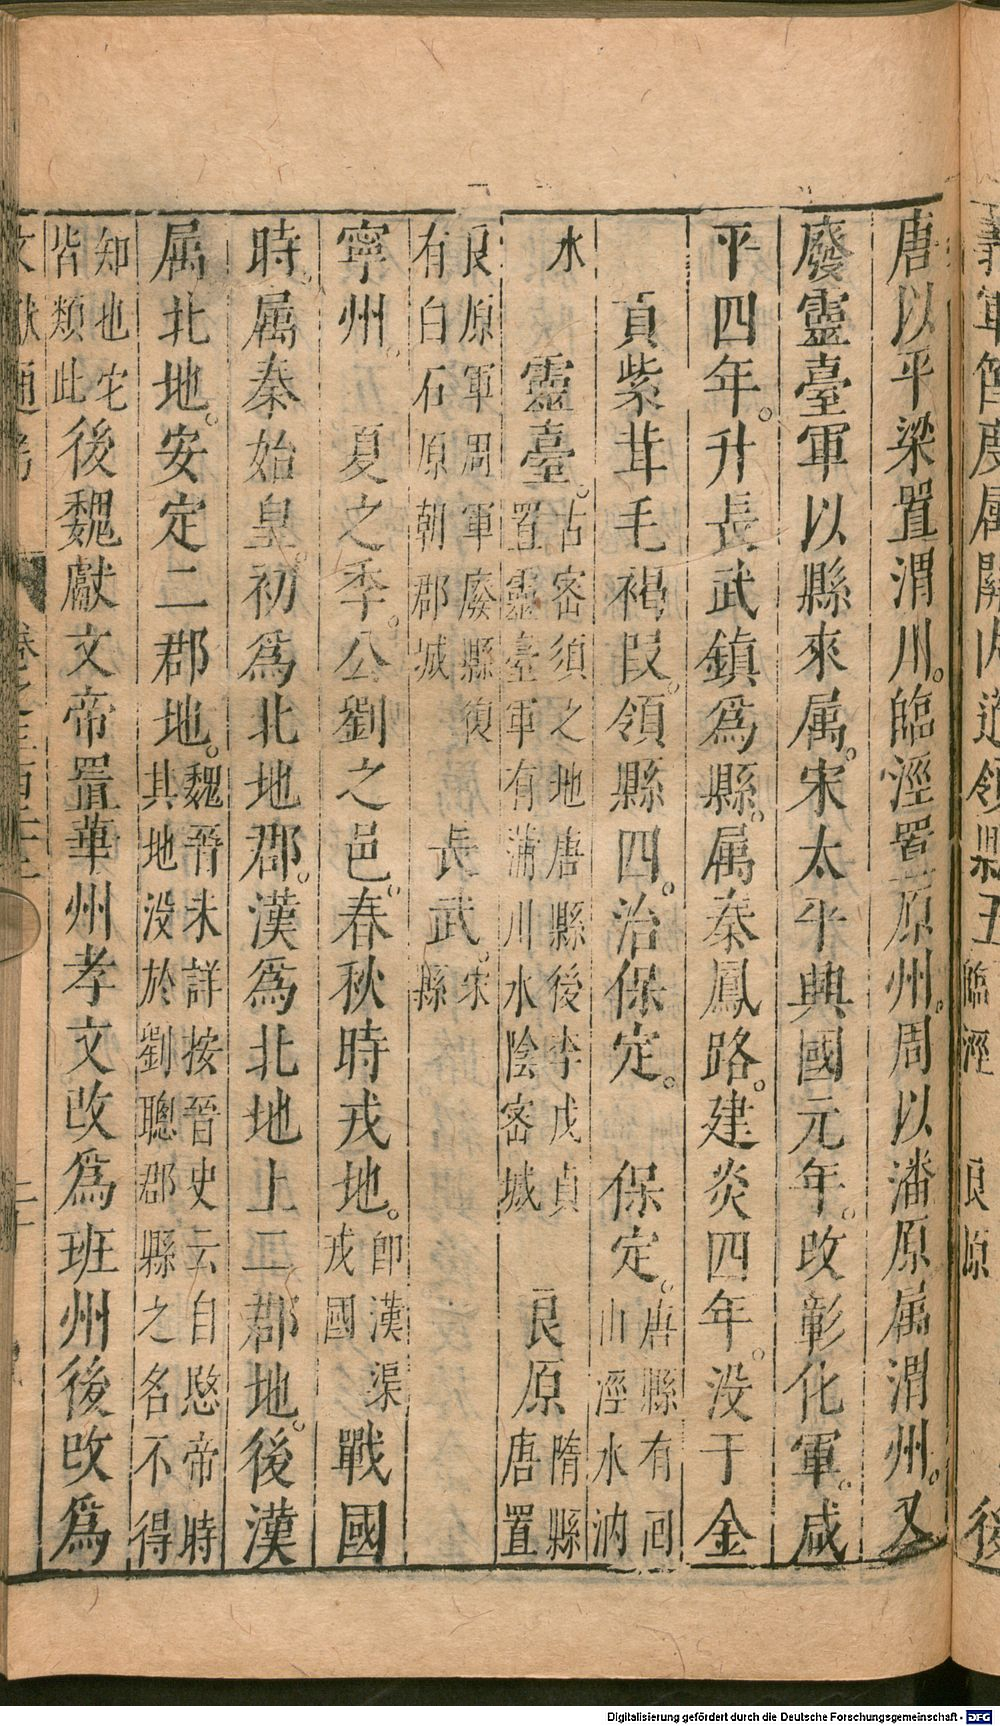 義軍節度属關内道領縣五臨涇 良原 後
唐以平梁置渭川。臨涇置原州。周以潘原属渭州。又
廢靈臺軍以縣來属。宋太平興國元年。改彰化軍。咸
平四年。升長武鎮爲縣。属秦鳳路。建炎四年。没于金
貢紫茸毛褐叚。領縣四。治保定。 保定。唐縣有囘山涇水汭
水 靈臺。古密須之地唐縣後李茂貞置靈臺軍有蒲川水陰密城 良原隋縣唐置
良原軍周軍廢縣復有白石原朝郡城 長武。宋縣
寧州。夏之季。公劉之邑。春秋時戎地。即漢渠戎國 戰國
時。属秦始皇。初爲北地郡。漢爲北地上二郡地。後漢
属北地。安定二郡地。魏晉未詳按晉史云自愍帝時其地没於劉聰郡縣之名不得
知地它皆類此後魏獻文帝置華州孝文改爲班州後改爲
文獻通考 卷之三百二十二
Digitalisierung gefördert durch die Deutsche Forschungsgemeinschaft - DFG